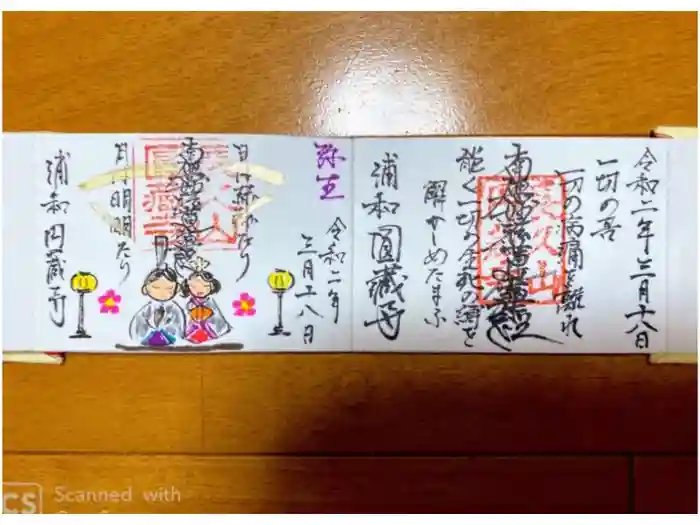 令和二年三月十八日
一切の苦
一切の病痛を離れ
南無妙法蓮華経
能く一切の生死の縛を
解かしめたまふ
浦和 圓藏寺
長久山
圓藏寺
弥生
令和二年
三月十八日
日は
南無妙法蓮華経
月は明明たり
浦和円蔵寺
長久山
圓藏寺
CS Scanned with